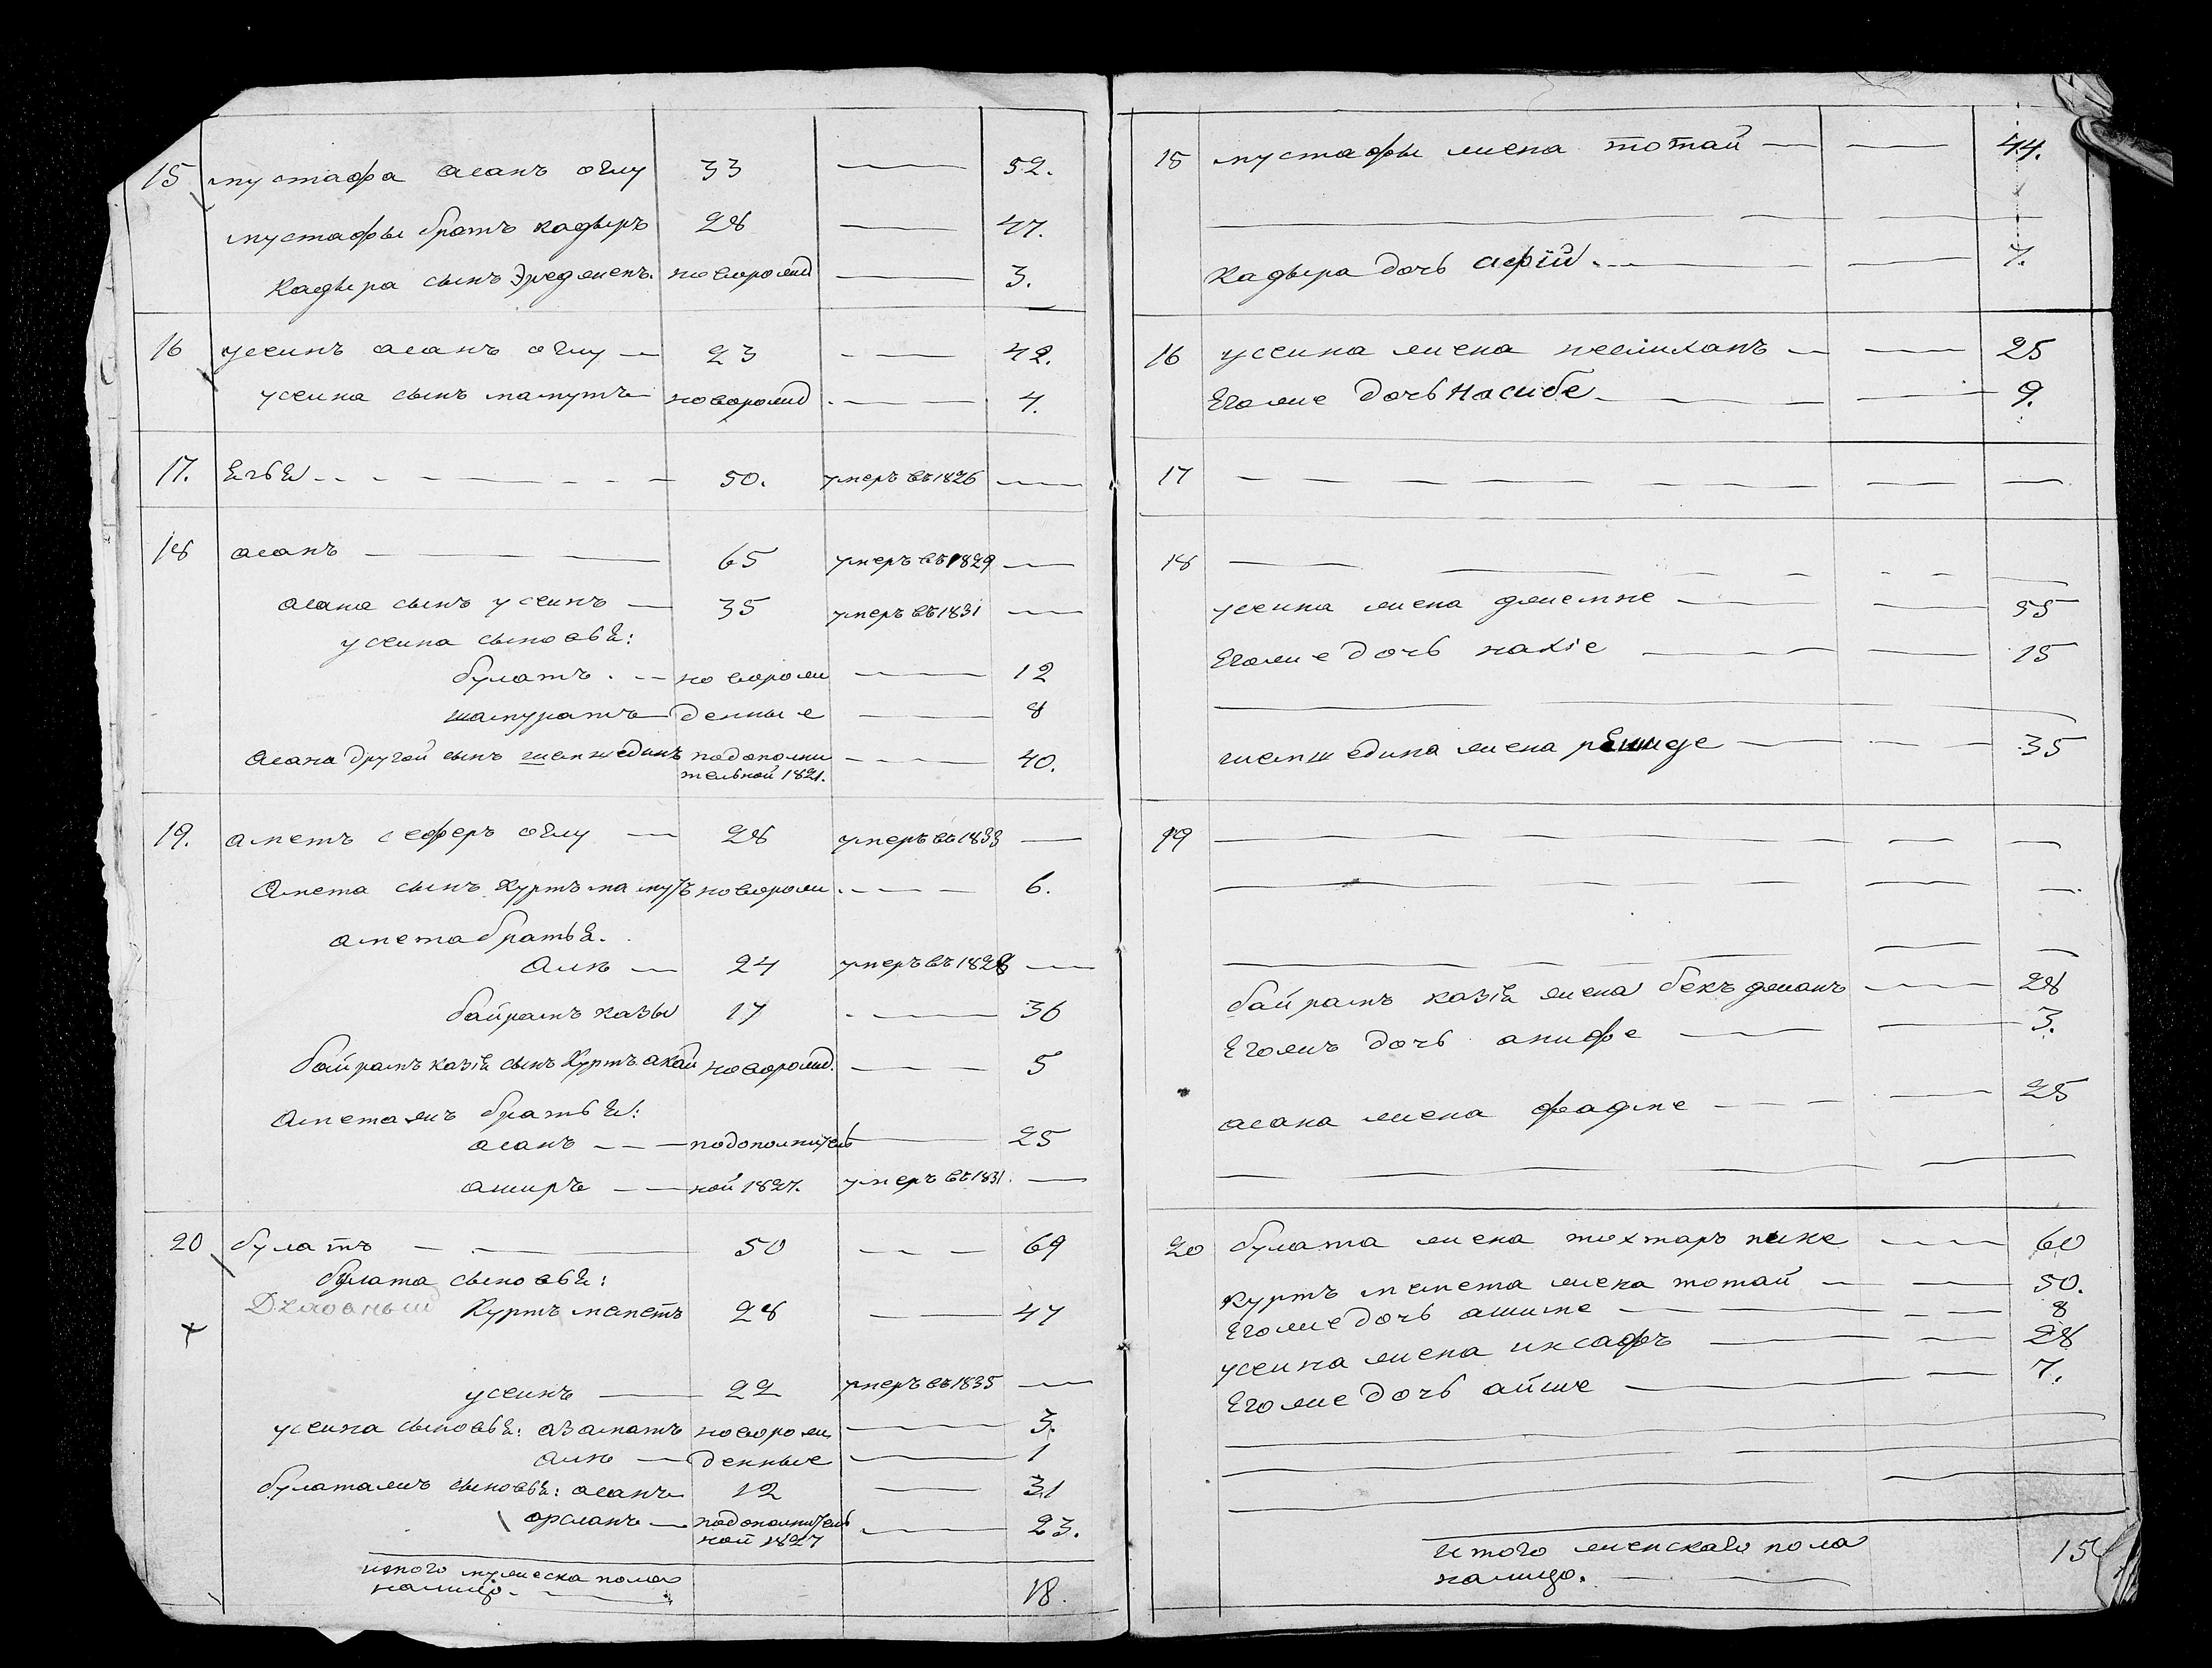 15 мустафа асанъ оглу 33 — 52.
мустафы братъ кадыръ 28 — 47.
кадыра сынъ Эреджепъ. новорожд — 3.
16 усеинъ асанъ оглу — 23 — 42.
усеина сынъ мамутъ новорожд. — 4.
17. 50. умеръ въ 1826 —
18 асанъ — 65 умеръ въ 1829 —
асана сынъ усеинъ — 35 умеръ въ 1831 —
усеина сыновьѣ:
булатъ. — новорож — 12
шамуратъ — денные — 8
асана другой сынъ шемшединъ подополни — 40.
тельной 1821.
19. аметъ сеферъ оглу — 28 умеръ въ 1833 —
амета сынъ Куртъ мамутъ новорож. — 6.
амета братьѣ.
али — 24 умеръ въ 1828 —
байрамъ казы 17 — 36
байрамъ казіѣ сынъ Куртъ акай новорожд. — 5
аметажъ братьѣ:
асанъ — подополнитель — 25
аширъ — ной 1827. умеръ въ 1831. —
20 булатъ — 50 — 69
булата сыновьѣ:
Куртъ меметъ 28 — 47
усеинъ — 22 умеръ въ 1835 —
усеина сыновьѣ: азаматъ новорож — 3.
али — денные — 1
булатажъ сыновьѣ: асанъ 12 — 31
арсланъ — подополнитель — 23.
ной 1827
итого мужеска пола
налицо. — 18.
15 мустафы жена тотай — — 44.
кадыра дочь афій. — — 7.
16 усеина жена — — 25
Егоже дочь насибе — — 9.
17 — — —
18 — — —
усеина жена джемне — — 55
Егоже дочь накіе — — 15
шемшедина жена решиде — — 35
19 — — —
— — —
— — —
байрамъ казіѣ жена бекъ джанъ — 28
Егожъ дочь анифе — — 3.
асана жена фадме — — 25
— —
20 булата жена тохтаръ пике — 60
Куртъ мемета жена тотай — — 50.
Егоже дочь ашиме — — 8
усеина жена инсафъ — — 28
Егоже дочь айше — — 7.
итого женскаго пола
налицо. — 15